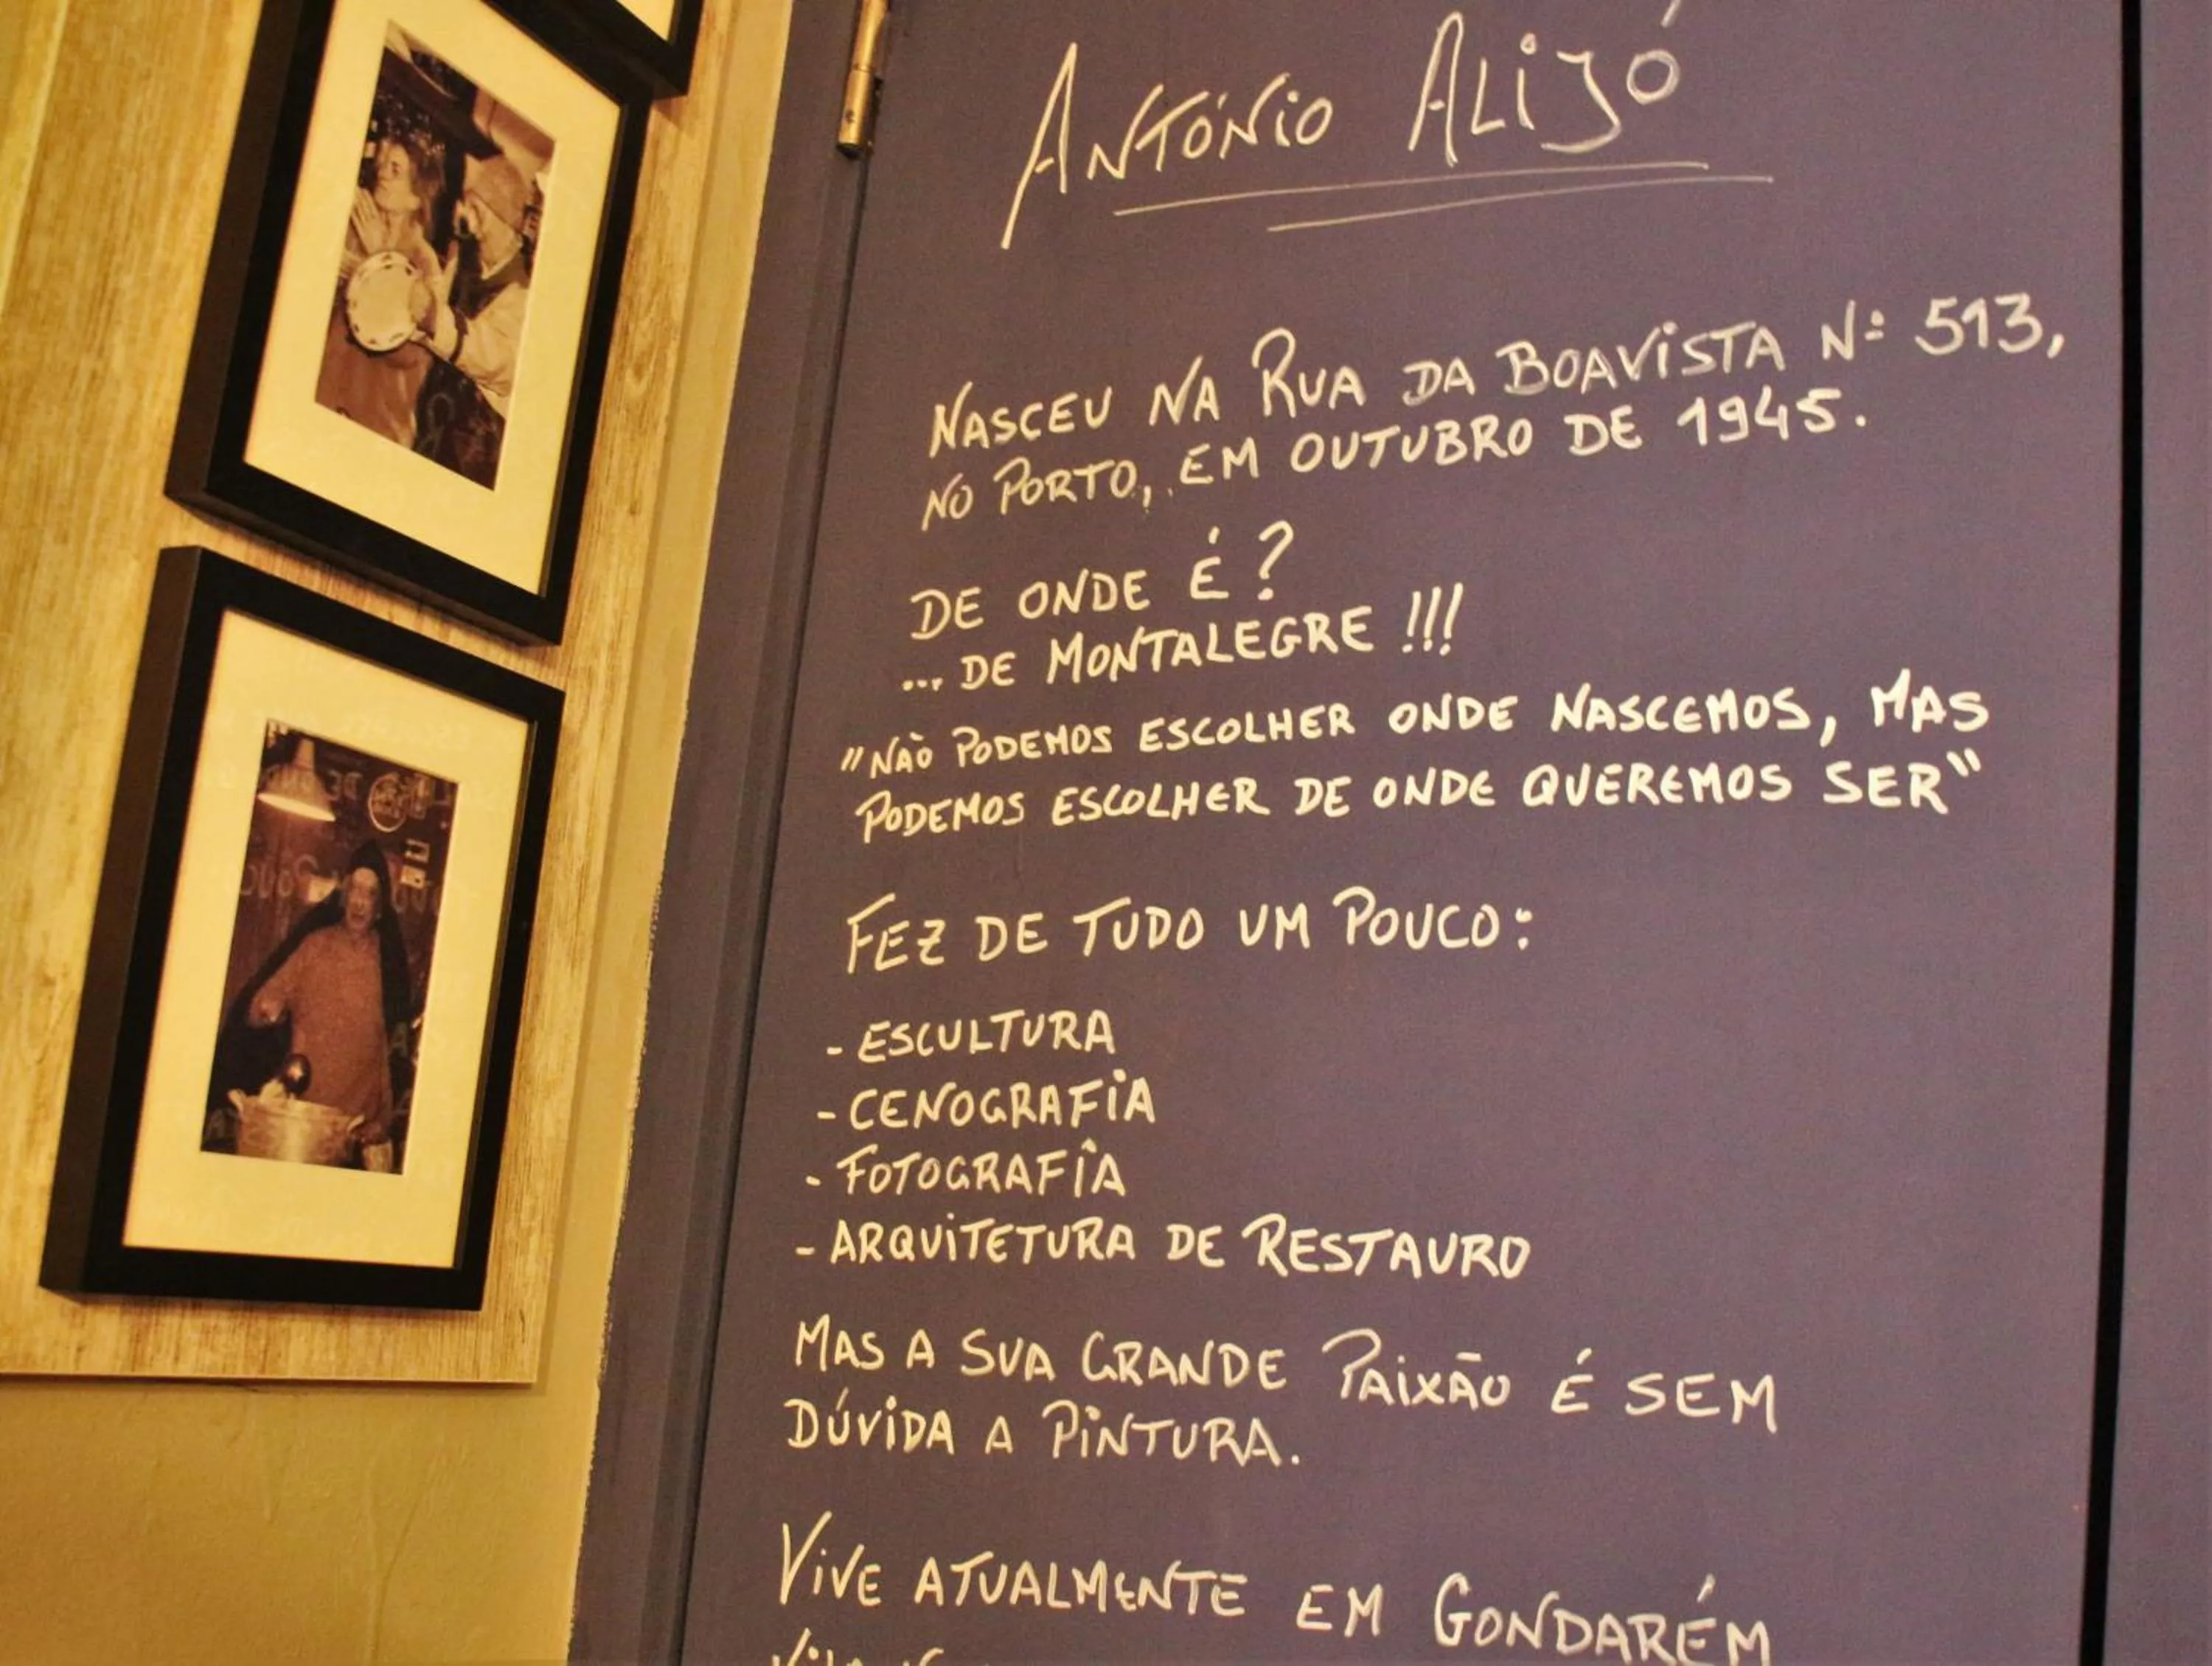 ANTÓNIO ALIJÓ
NASCEU NA RUA DA BOAVISTA Nº 513,
NO PORTO, EM OUTUBRO DE 1945.
DE ONDE É?
... DE MONTALEGRE!!!
"NÃO PODEMOS ESCOLHER ONDE NASCEMOS, MAS
PODEMOS ESCOLHER DE ONDE QUEREMOS SER"
FEZ DE TUDO UM POUCO:
- ESCULTURA
- CENOGRAFIA
- FOTOGRAFIA
- ARQUITETURA DE RESTAURO
MAS A SUA GRANDE PAIXÃO É SEM
DÚVIDA A PINTURA.
VIVE ATUALMENTE EM GONDARÉM